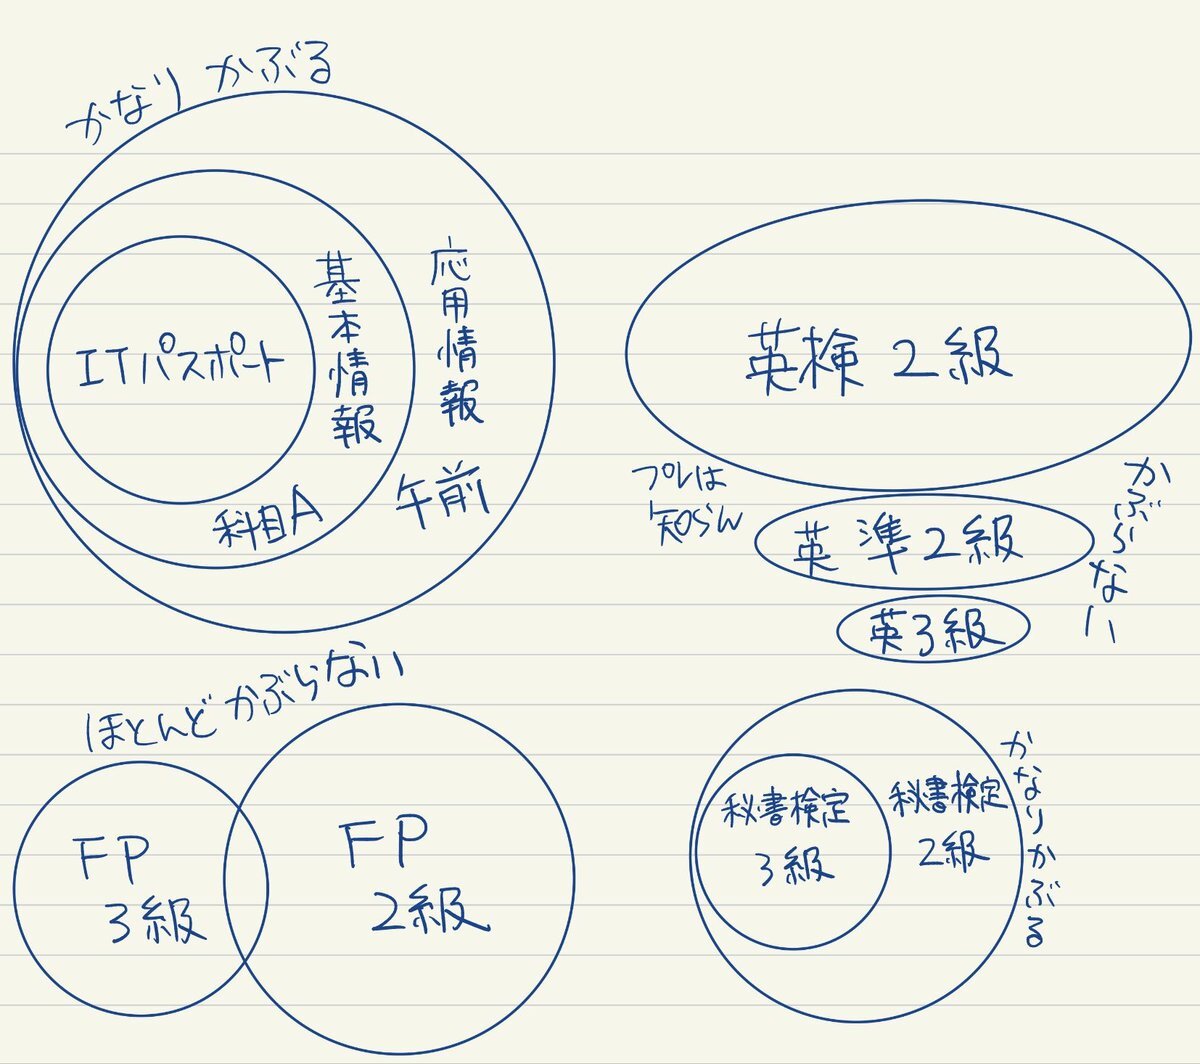 かなりかぶる
ITパスポート
基本情報
科目A
応用情報
午前
英検2級
プレは
知らん
英準2級
英3級
かぶらない
ほとんどかぶらない
FP
3級
FP
2級
秘書検定
3級
秘書検定
2級
かなりかぶる